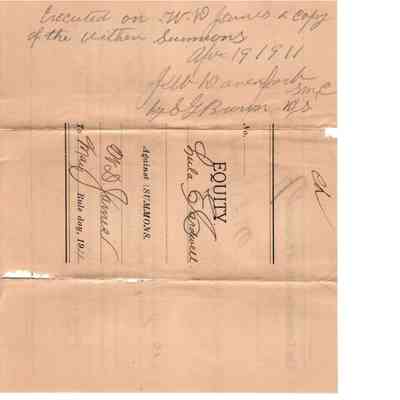 Executed on W. D. James a copy
of the within Summons
Apr 19 1911
Jeff Davenport
SMC
by E G Brown D.S.
No.
EQUITY
Lula Cardwell
Against } SUMMONS.
W D James
To May Rule day, 1911